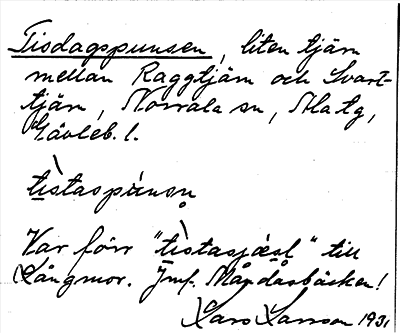 Tisdagspunsen, liten tjärn
mellan Raggtjärn och Svart-
tjärn, Norrala sn, Ala tg,
Gävleb. l.
tìstaspúnsn
Var förr "tìstasjœsl" till
Långmor. Jmf. Måndasbäcken!
Lars Larsson 1931